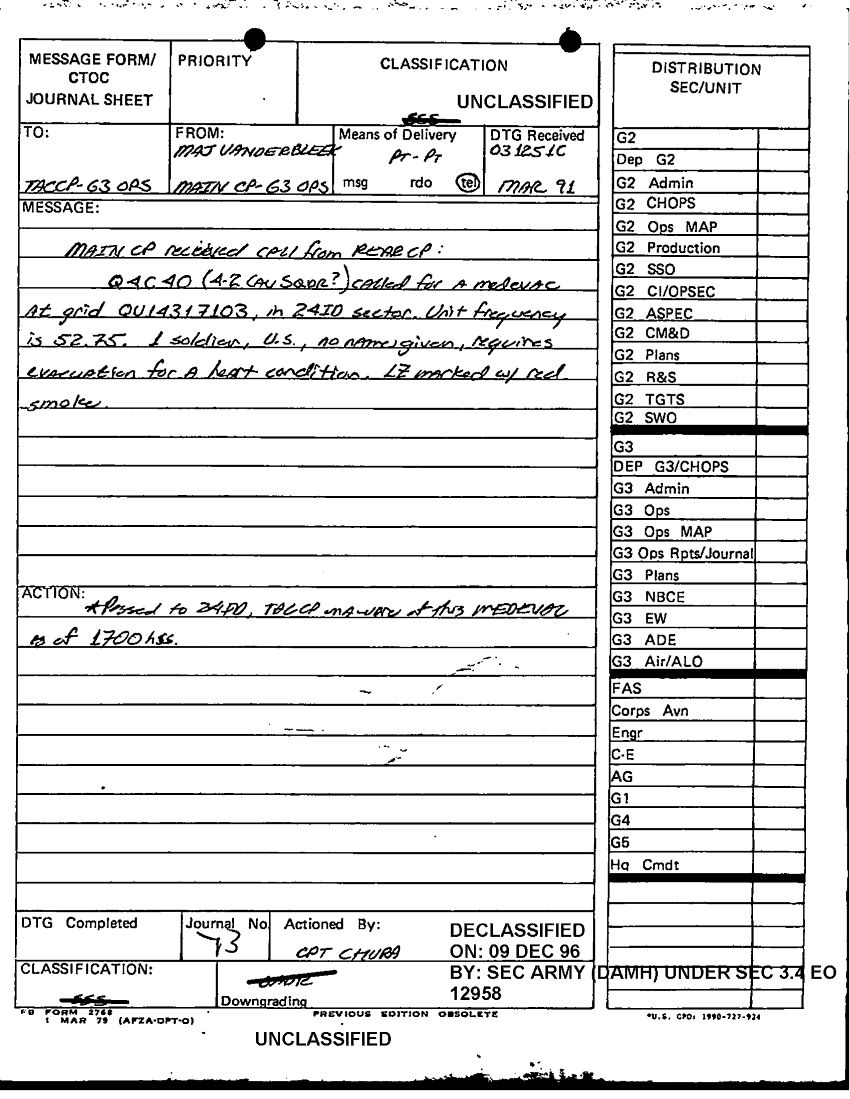 MESSAGE FORM/
CTOC
JOURNAL SHEET
PRIORITY
CLASSIFICATION
UNCLASSIFIED
TO:
TACCP-G3 OPS
FROM:
MAJ VANDERBLEEK
MAIN CP-G3 OPS
Means of Delivery
PT-PT
msg rdo tel
DTG Received
031251C
MAR 91
MESSAGE:
MAIN CP received call from REAR CP:
Q4C40 (4-2 CAV SQDR?) called for A medevac
At grid QU14317103, in 24ID sector. Unit frequency
is 52.75. 1 soldier, U.S., no name given, requires
evacuation for A heart condition. LZ marked w/ red
smoke.
ACTION:
*Passed to 24ID, TACCP unaware of this MEDEVAC
as of 1700 hrs.
DTG Completed
Journal No.
73
Actioned By:
CPT CHURA
DECLASSIFIED
ON: 09 DEC 96
BY: SEC ARMY (DAMH) UNDER SEC 3.4 EO
12958
CLASSIFICATION:
Downgrading
FB FORM 2768
1 MAR 79 (AFZA-DPT-O)
PREVIOUS EDITION OBSOLETE
UNCLASSIFIED
DISTRIBUTION
SEC/UNIT
G2
Dep G2
G2 Admin
G2 CHOPS
G2 Ops MAP
G2 Production
G2 SSO
G2 CI/OPSEC
G2 ASPEC
G2 CM&D
G2 Plans
G2 R&S
G2 TGTS
G2 SWO
G3
DEP G3/CHOPS
G3 Admin
G3 Ops
G3 Ops MAP
G3 Ops Rpts/Journal
G3 Plans
G3 NBCE
G3 EW
G3 ADE
G3 Air/ALO
FAS
Corps Avn
Engr
C-E
AG
G1
G4
G5
Hq Cmdt
*U.S. GPO: 1990-727-924